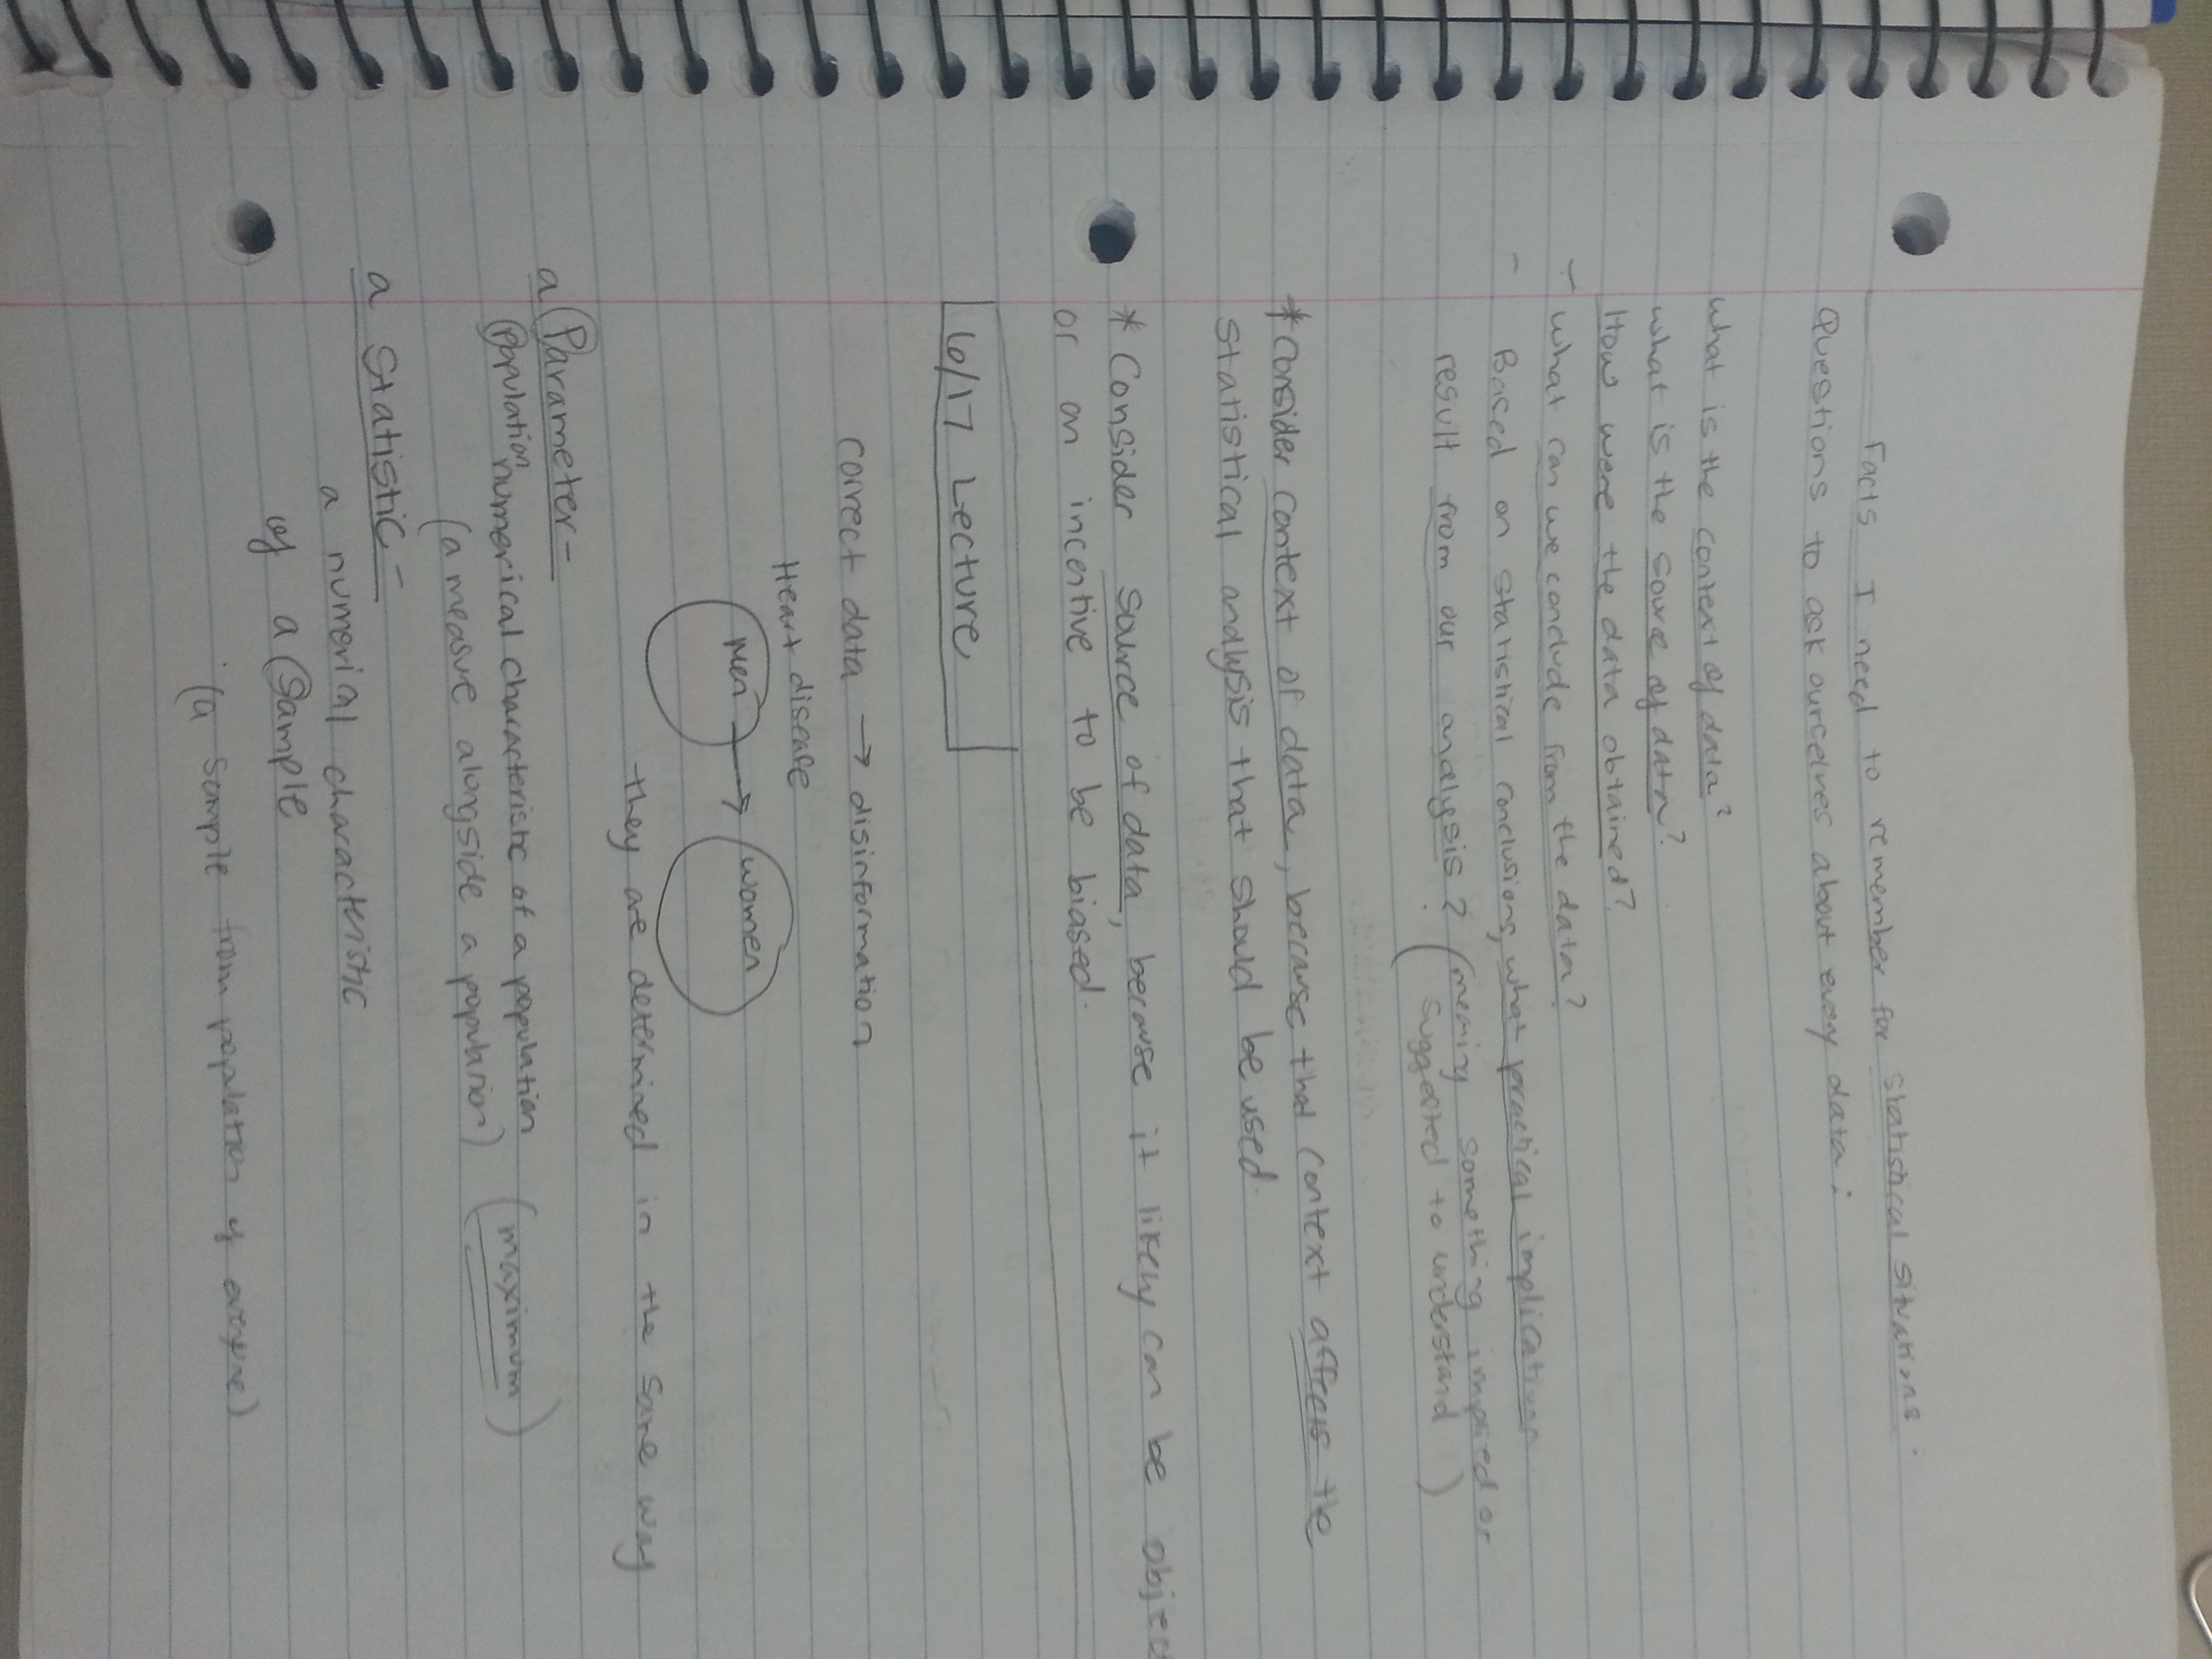 Facts I need to remember for statistical situations:
Questions to ask ourselves about every data:
what is the context of data?
what is the source of data?
How were the data obtained?
- what can we conclude from the data?
- Based on statistical conclusions, what practical implications
result from our analysis? (meaning something implied or
suggested to understand)
*consider context of data, because that context affects the
statistical analysis that should be used.
* Consider source of data, because it likely can be object
or an incentive to be biased.
6/17 Lecture
correct data → disinformation
Heart disease
men → women
they are determined in the same way
a Parameter-
population numerical characteristic of a population (maximum)
(a measure alongside a population)
a Statistic-
a numerical characteristic
of a sample
(a sample from population of